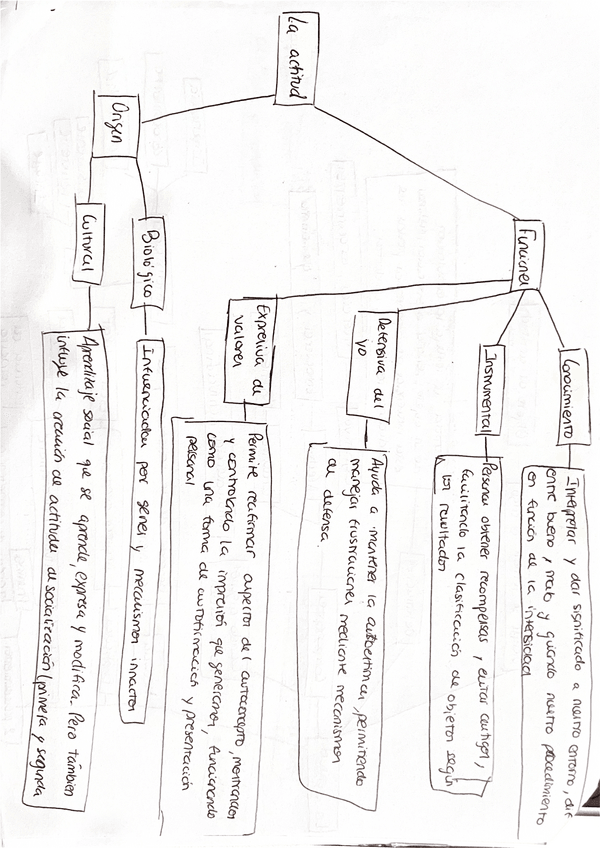 La actitud
Funciones
Conocimiento
Interpretar y dar significado a nuestro entorno, dif
entre bueno, malo y guiando nuestro procedimiento
en función de la intensidad
Instrumental
Personas obtener recompensas, evitar castigos,
facilitando la clasificación de objetos según
los resultados
Defensiva del
yo
Ayuda a mantener la autoestima, permitiendo
manejar frustraciones mediante mecanismos
de defensa.
Expresiva de
valores
Permite reafirmar aspectos del autoconcepto, mostrarnos
y controlando la impresión que generamos, funcionando
como una forma de autoafirmación y presentación
personal
Origen
Biológico
Influenciadas por genes y mecanismos innatos
Cultural
Aprendizaje social que se aprende, expresa y modifica. Pero también
influye la creación de actitudes de socialización (primera y segunda